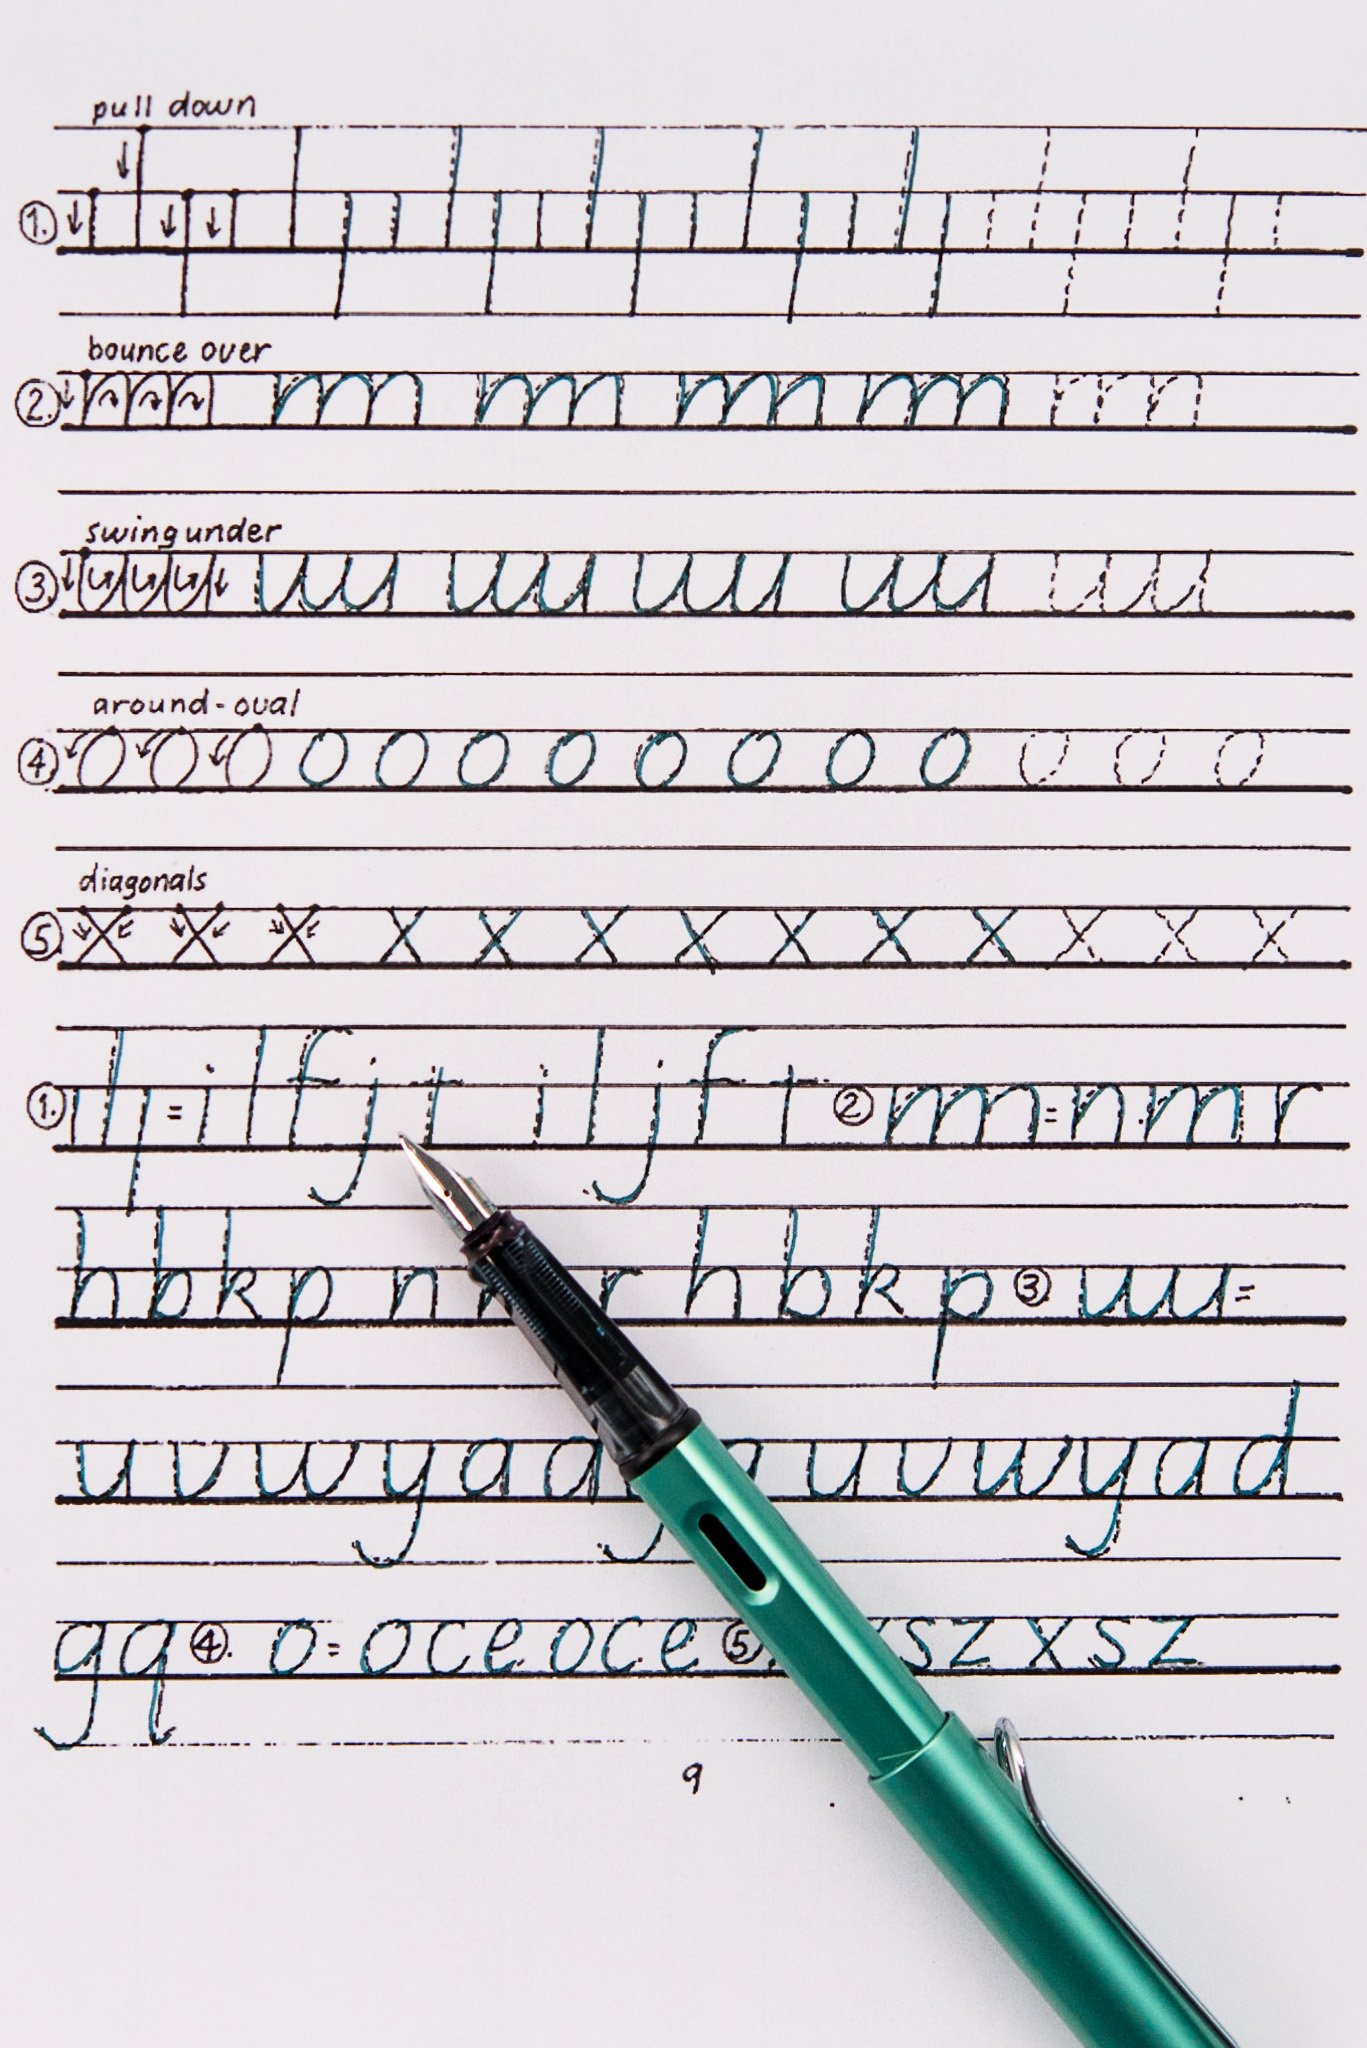 pull down
1.
bounce over
2. mm mm mm mm mn
3. swing under
uu uu uu uu uu
around-oval
4 O O O O O O O O O O O O O O
diagonals
5. X X X X X X X X X X X X X
1. = i l f j t i l j f t 2 m = n m r
h b k p n r h b k p 3 uu =
u v w y a d u v w y a d
g q 4. o = o c e o c e 5 s z x s z
9